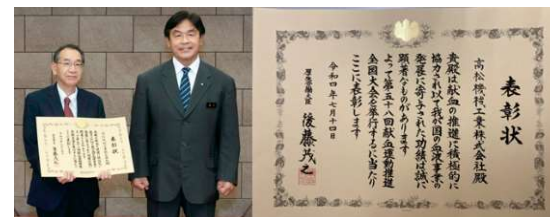 表彰状
高松機械工業株式会社殿
貴殿は献血の推進に積極的に
協力され以て我が国の血液事業の
発展に寄与された功績は誠に
顕著なものがあります
よって第五十八回献血運動推進
全国大会を挙行するに当たり
ここに表彰します
令和四年七月十四日
厚生労働大臣 後藤茂之